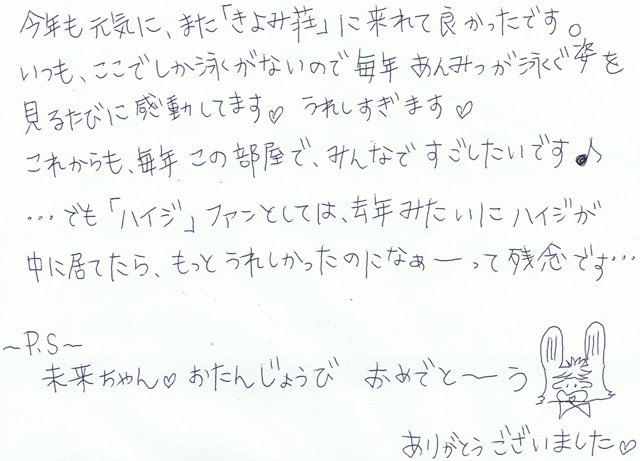 今年も元気に、また「きよみ荘」に来れて良かったです。
いつも、ここでしか泳がないので毎年 あんみつが泳ぐ姿を
見るたびに感動してます♡ うれしすぎます♡
これからも、毎年 この部屋で、みんなで すごしたいです♪
…でも「ハイジ」ファンとしては、去年みたいにハイジが
中に居てたら、もっと うれしかったのになぁーって残念です…
～P.S～
未来ちゃん♡ おたんじょうび おめでと〜う
ありがとうございました♡